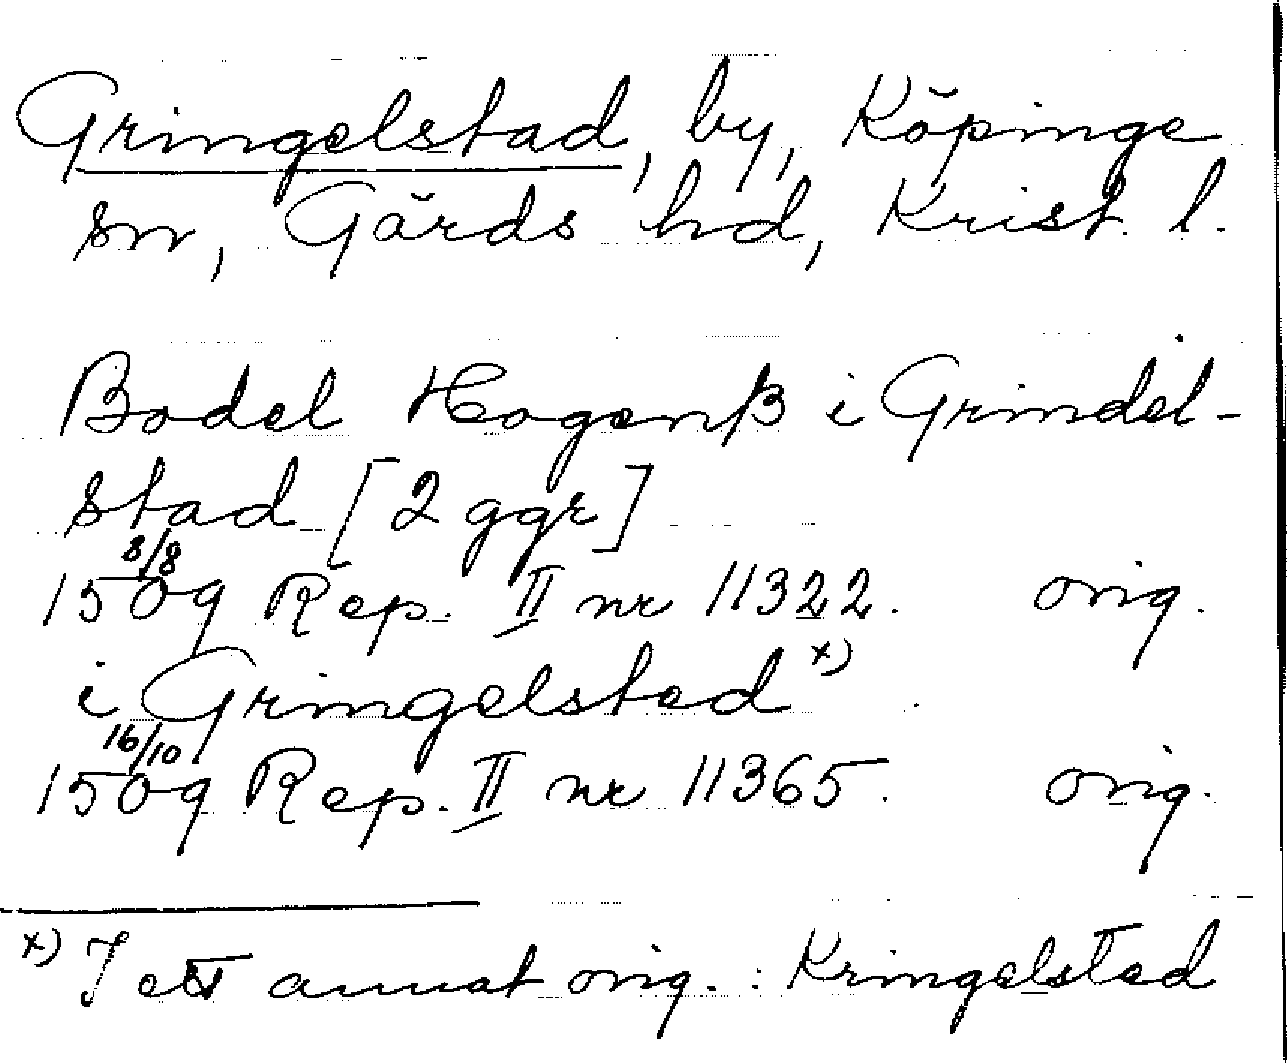 Gringelstad, by, Köpinge
sn, Gärds hd, Krist. l.
Bodel Hagenß i Grindel-
stad [2 ggr]
8/8
1509 Rep. II nr 11322. orig.
i Gringelsted x)
16/10
1509 Rep. II nr 11365. orig.
x) I ett annat orig.: Kringelsted